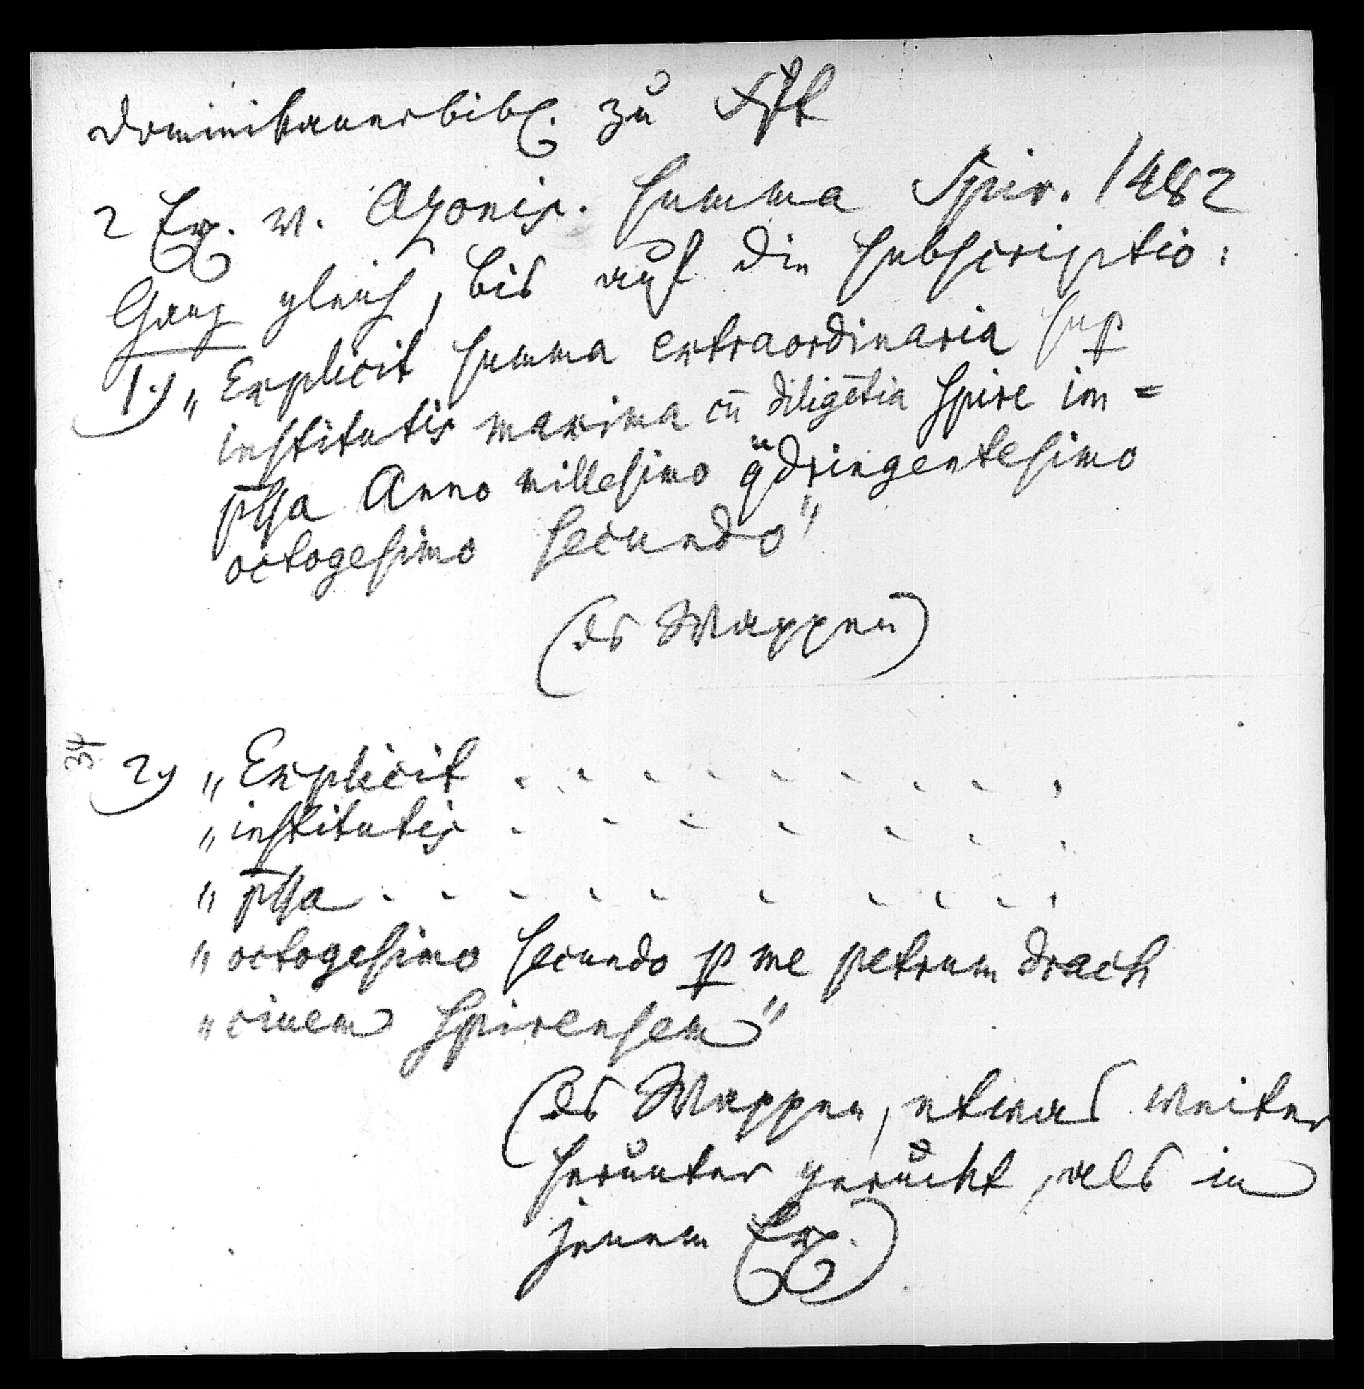 Dominikanerbibl. zu Fft
2 Ex. v. Azonis. Summa Spir. 1482
Ganz gleich, bis auf die subscriptio:
1.) „Explicit summa extraordinaria sup̱
institutis maxima cū diligētia spire im=
p̄ssa Anno millesimo qͣdringentesimo
octogesimo secundo"
(ds Wappen)
34
2) „Explicit . . . . . . . . . .
„institutis . . . . . . .
„p̄ssa . . . . . . . . . .
„octogesimo secundo ꝑ me petrum drach
„civem spirensem"
(ds Wappen, etwas weiter
herunter gerückt, als in
jenem Ex.)